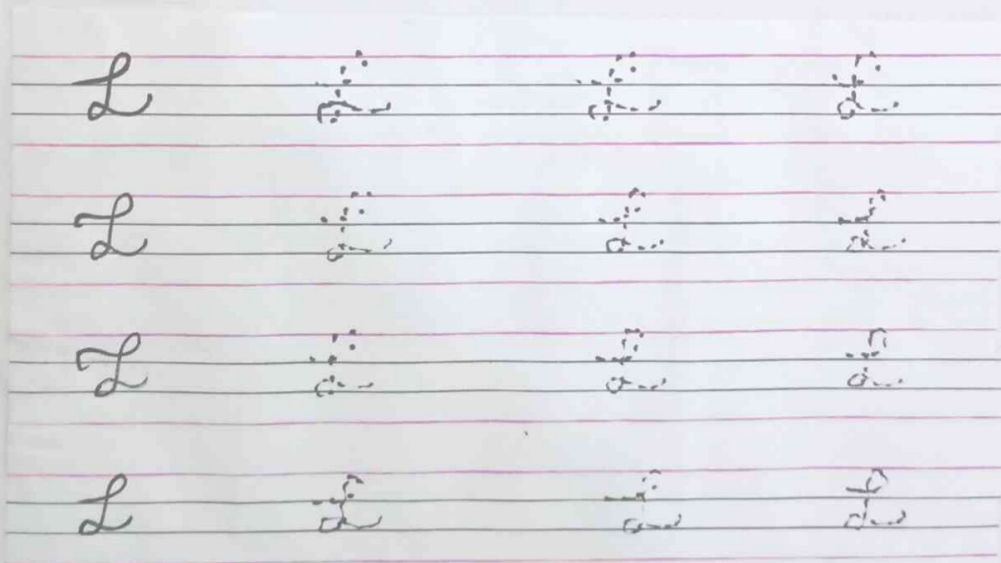 L L L L
L L L L
L L L L
L L L L